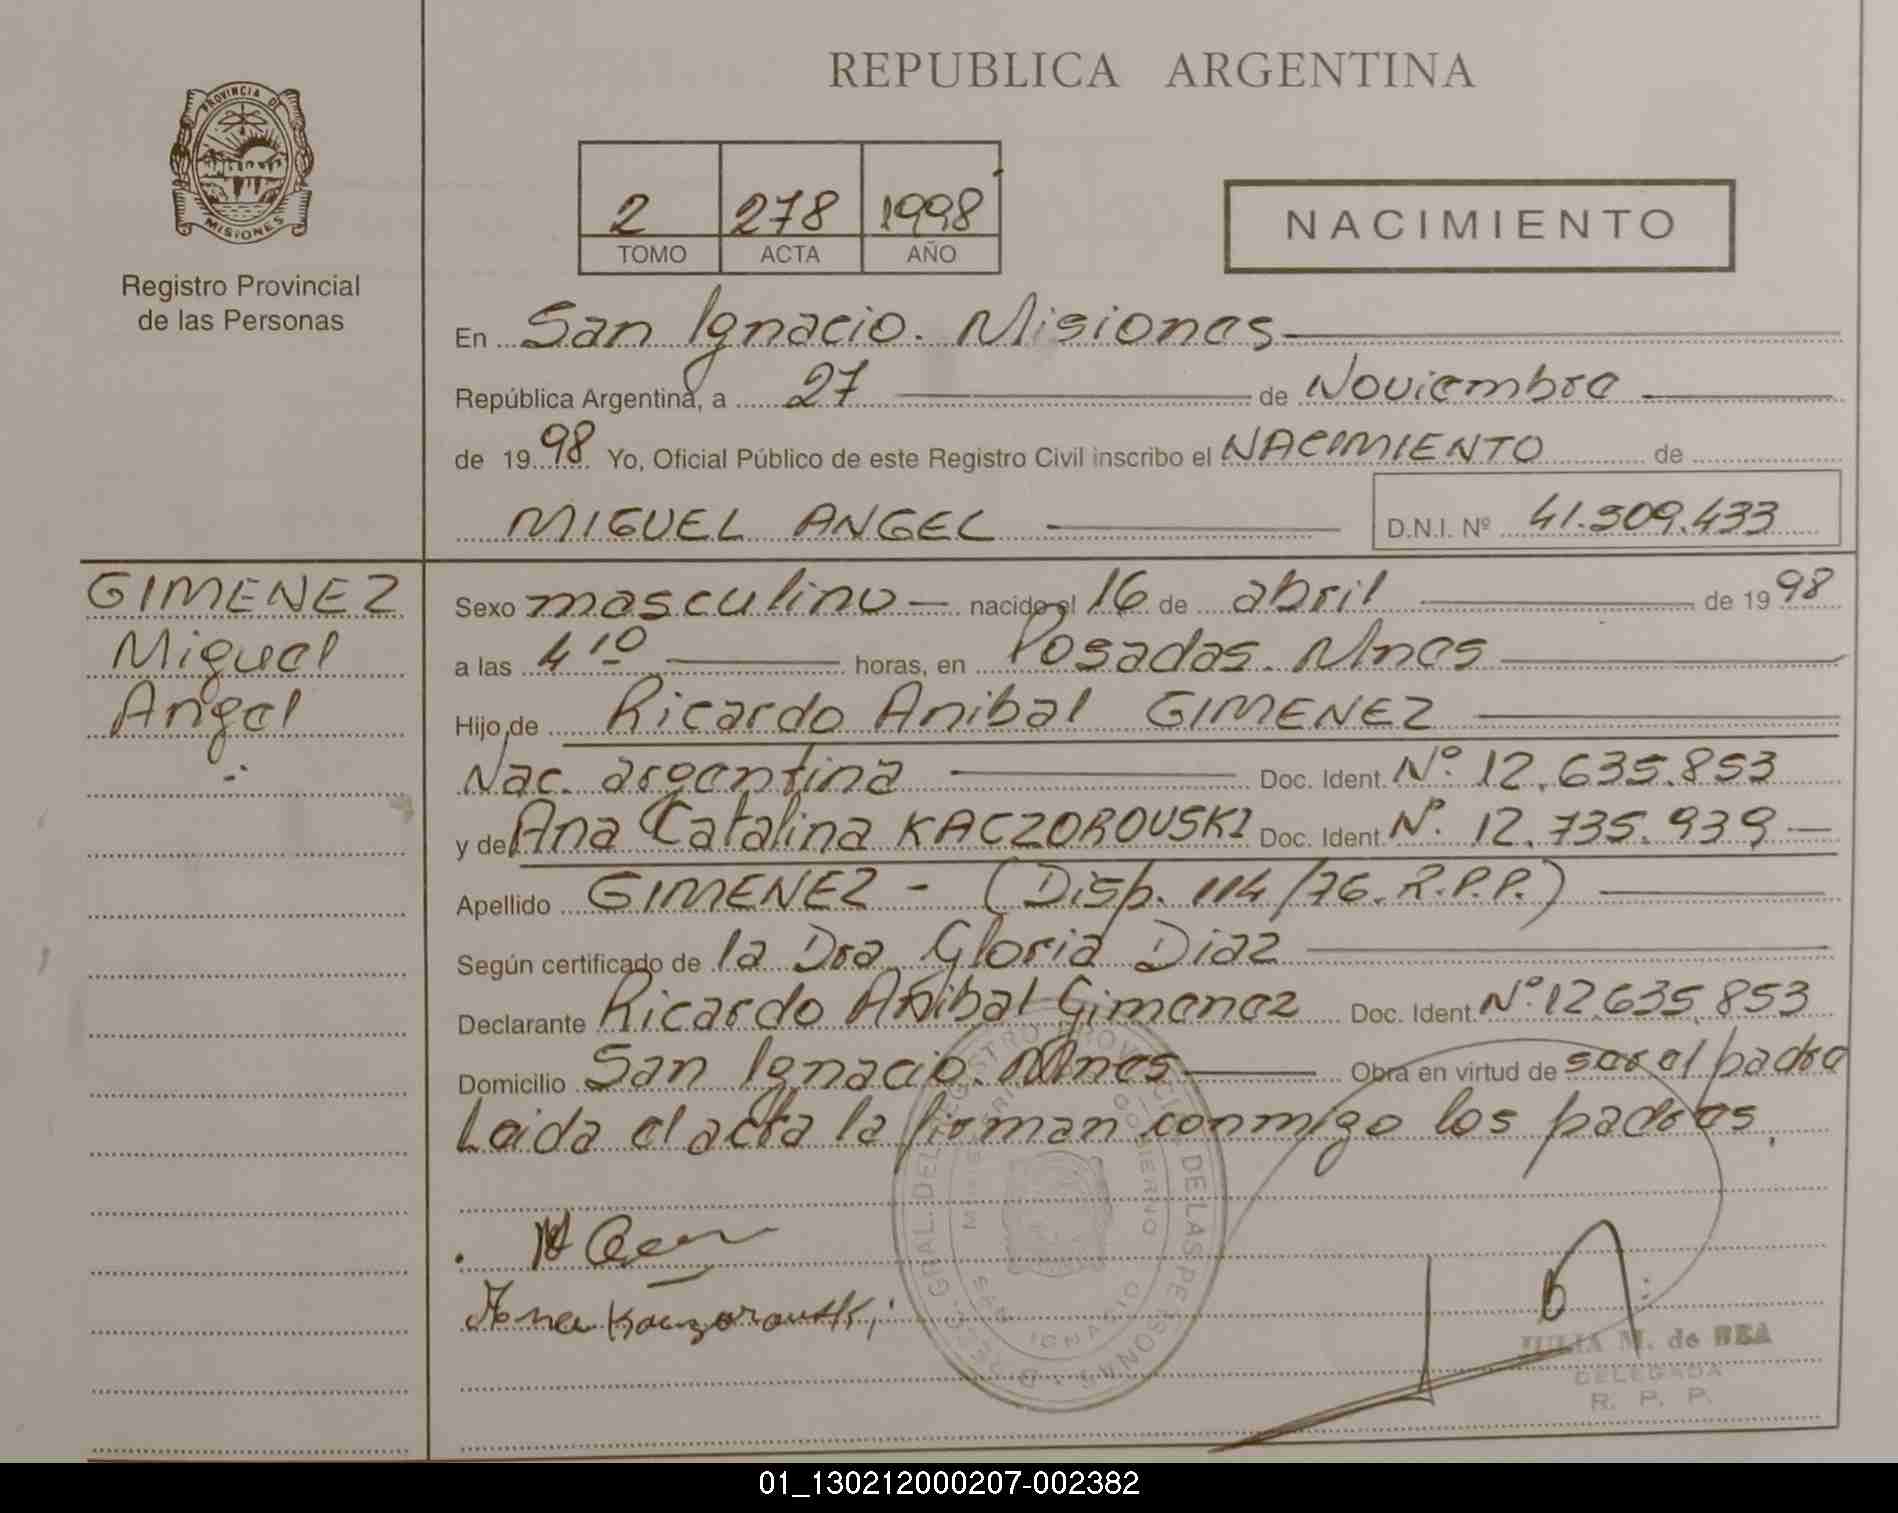 REPUBLICA ARGENTINA
PROVINCIA DE
MISIONES
Registro Provincial
de las Personas
2 278 1998
TOMO ACTA AÑO
NACIMIENTO
En San Ignacio. Misiones
República Argentina, a 27 de Noviembre
de 1998 Yo, Oficial Público de este Registro Civil inscribo el NACIMIENTO de
MIGUEL ANGEL D.N.I. Nº 41.309.433
GIMENEZ
Miguel
Angel
Sexo masculino nacido el 16 de abril de 1998
a las 4 10 horas, en Posadas. Mnes
Hijo de Ricardo Anibal GIMENEZ
Nac. argentina Doc. Ident. Nº. 12.635.853
y de Ana Catalina KACZOROUSKI Doc. Ident. Nº. 12.735.939
Apellido GIMENEZ - (Disp. 114/76. R.P.P.)
Según certificado de la Dra Gloria Diaz
Declarante Ricardo Anibal Gimenez Doc. Ident. Nº. 12.635.853
Domicilio San Ignacio. Mnes Obra en virtud de ser el padre
Leida el acta la firman conmigo los padres.
DE LAS PERSONAS
GOBIERNO
SAN IGNACIO
JULIA M. de BEA
DELEGADA
R. P. P.
01_130212000207-002382